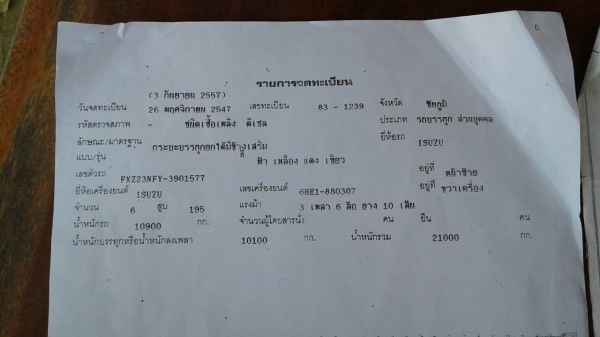 6
รายการจดทะเบียน
(3 กันยายน 2557)
วันจดทะเบียน 26 พฤศจิกายน 2547 เลขทะเบียน 83 - 1239 จังหวัด ชัยภูมิ
รหัสตรวจสภาพ - ชนิดเชื้อเพลิง ดีเซล ประเภท รถบรรทุก ส่วนบุคคล
ลักษณะ/มาตรฐาน กระบะบรรทุกยกได้มีข้างเสริม ยี่ห้อรถ ISUZU
แบบ/รุ่น สี ฟ้า เหลือง แดง เขียว
เลขตัวรถ FXZ23NFY-3901577 อยู่ที่ หน้าซ้าย
ยี่ห้อเครื่องยนต์ ISUZU เลขเครื่องยนต์ 6HE1-880307 อยู่ที่ ขวาเครื่อง
จำนวน 6 สูบ 195 แรงม้า 3 เพลา 6 ล้อ ยาง 10 เส้น
น้ำหนักรถ 10900 กก. จำนวนผู้โดยสารนั่ง คน ยืน คน
น้ำหนักบรรทุกหรือน้ำหนักลงเพลา 10100 กก. น้ำหนักรวม 21000 กก.